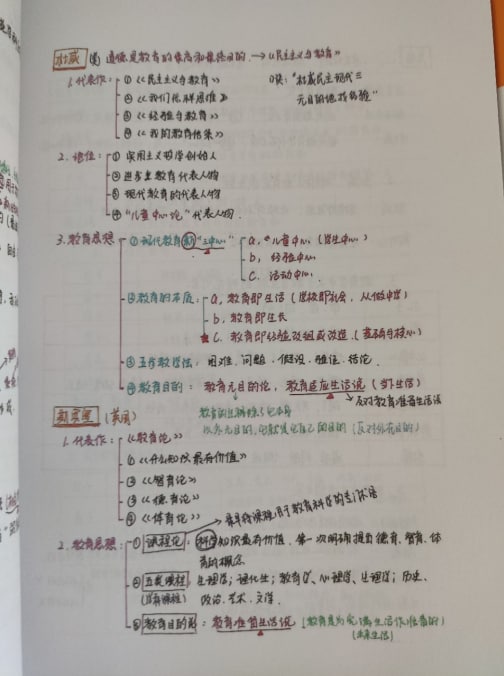 杜威 道德是教育的最高和最终目的 → 《民主主义与教育》
1.代表作: ①《民主主义与教育》 口诀:"杜威民主现代三
②《我们怎样思维》 无目的地找经验"
③《经验与教育》
④《我的教育信条》
2.地位: ①实用主义哲学创始人
②进步主义教育代表人物
③现代教育的代表人物
④"儿童中心论"代表人物
3.教育思想 ①现代教育新"三中心" a.儿童中心(学生中心)
b.经验中心
C.活动中心
②教育的本质: a.教育即生活(学校即社会,从做中学)
b.教育即生长
C.教育即经验改组或改造(基础与核心)
③五步教学法: 困难.问题.假设.验证.结论
④教育目的: 教育无目的论,教育适应生活说(当下生活)
反对教育准备生活说
教育的过程除了它本身
以外无目的,它就是它自己的目的(反对外在目的)
斯宾塞(英国)
1.代表作: ①《教育论》
②《什么知识最有价值》
③《智育论》
④《德育论》
⑤《体育论》
最早将课程用于教育科学的专门术语
2.教育思想: ①课程论: 科学知识最有价值.第一次明确提出德育.智育.体
育的概念
②五类课程 生理学;理化生;教育学,心理学、生理学;历史.
政治.艺术.文学.
③教育目的: 教育准备生活说 [教育是为完满生活作准备的]
(未来生活)